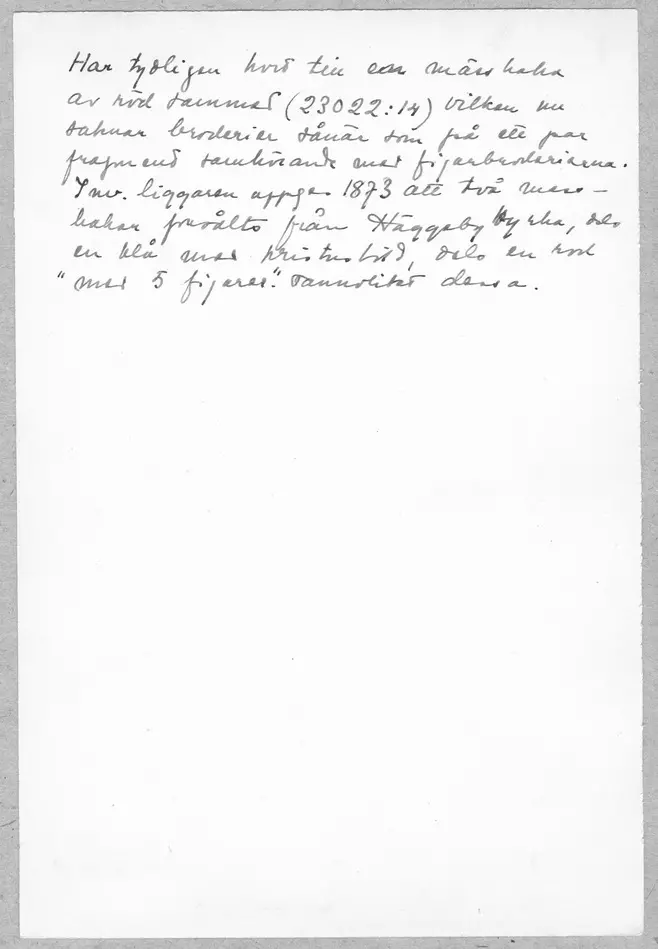 Har tydligen hört till en mässhaka
av röd sammet (23022:14) vilken nu
saknar broderier sånär som på ett par
fragment samhörande med figurbroderierna.
I inv. liggaren uppges 1873 att två mäss-
hakar förvälts från Häggeby kyrka, dels
en blå med kristusbild, dels en röd
"med 5 figurer". Sannolikt dessa.